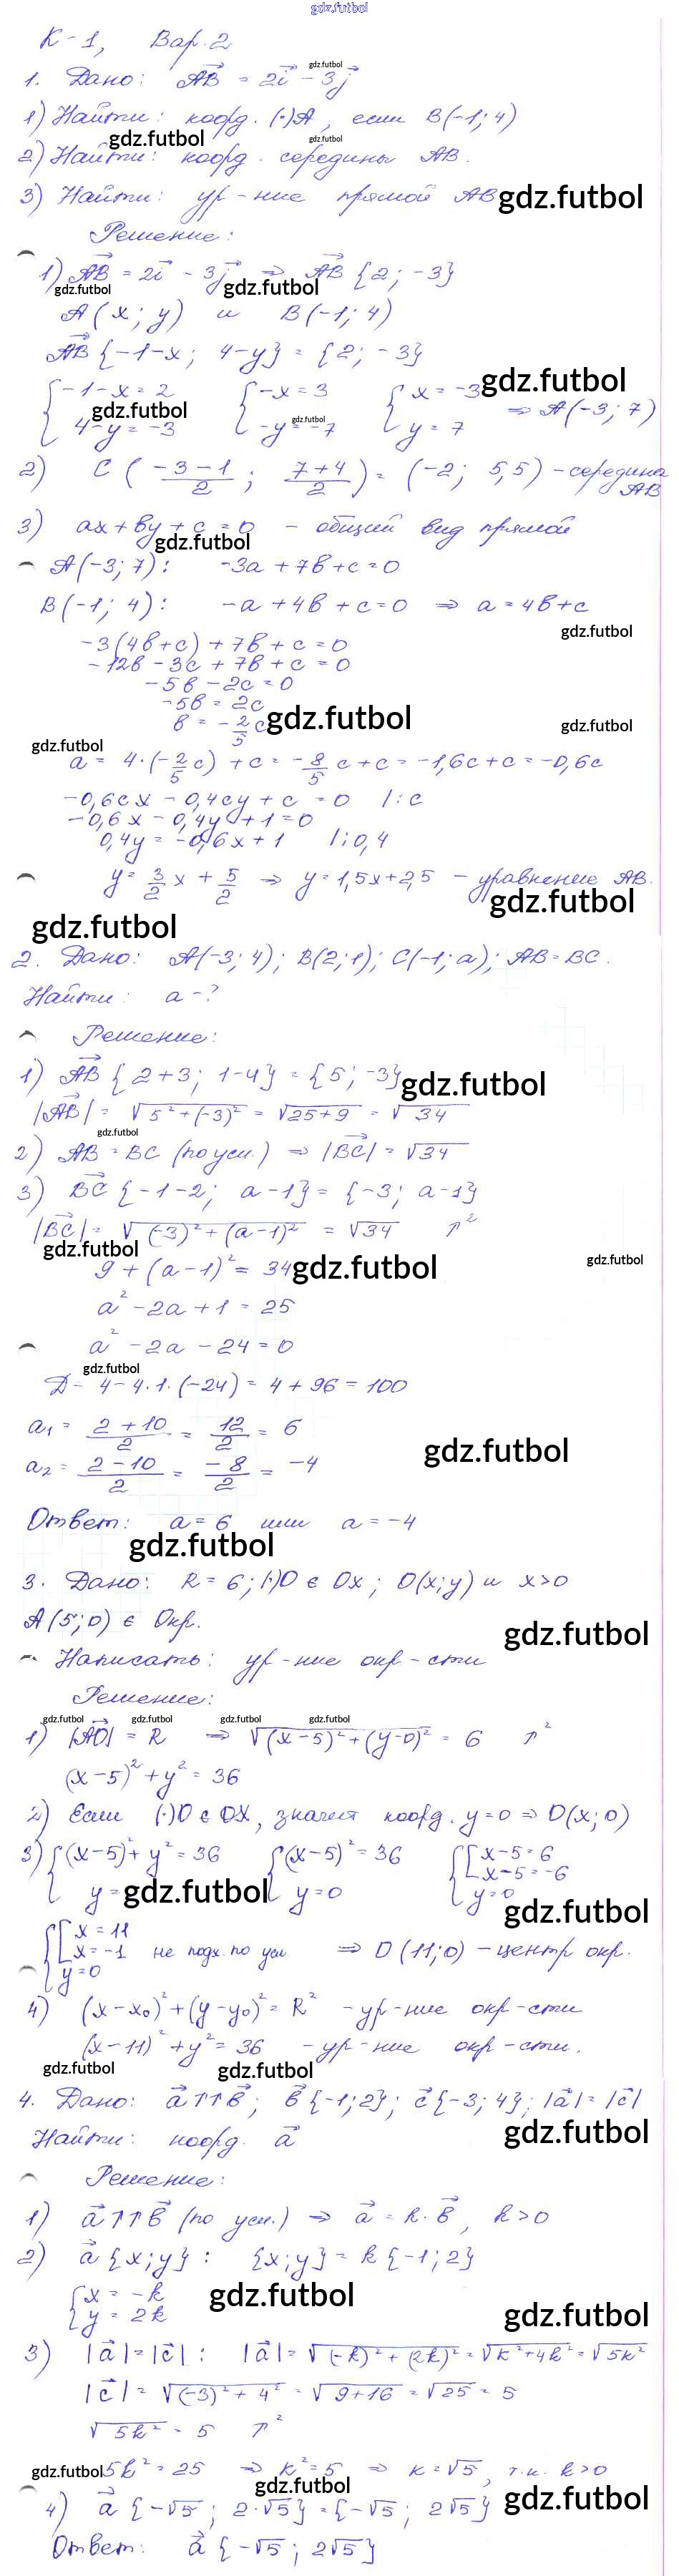 gdz.futbol
К-1, Вар. 2
1. Дано: AB = 2i - 3j
1) Найти: коорд. (·)A, если B(-1; 4)
2) Найти: коорд. середины AB.
3) Найти: ур-ние прямой AB
Решение:
1) AB = 2i - 3j ⇒ AB {2; -3}
A(x; y) и B(-1; 4)
AB {-1-x; 4-y} = {2; -3}
{-1-x = 2 {-x = 3 {x = -3
4-y = -3 -y = -7 y = 7 ⇒ A(-3; 7)
2) C((-3-1)/2; (7+4)/2) = (-2; 5,5) - середина AB
3) ax + by + c = 0 - общий вид прямой
A(-3; 7): -3a + 7b + c = 0
B(-1; 4): -a + 4b + c = 0 ⇒ a = 4b + c
-3(4b+c) + 7b + c = 0
-12b - 3c + 7b + c = 0
-5b - 2c = 0
-5b = 2c
b = -2/5 c
a = 4·(-2/5 c) + c = -8/5 c + c = -1,6c + c = -0,6c
-0,6cx - 0,4cy + c = 0 /:c
-0,6x - 0,4y + 1 = 0
0,4y = -0,6x + 1 /:0,4
y = 3/2 x + 5/2 ⇒ y = 1,5x + 2,5 - уравнение AB.
2. Дано: A(-3; 4); B(2; 1); C(-1; a); AB = BC.
Найти: a - ?
Решение:
1) AB {2+3; 1-4} = {5; -3}
|AB| = √(5² + (-3)²) = √(25+9) = √34
2) AB = BC (по усл.) ⇒ |BC| = √34
3) BC {-1-2; a-1} = {-3; a-1}
|BC| = √((-3)² + (a-1)²) = √34 ↑²
9 + (a-1)² = 34
a² - 2a + 1 = 25
a² - 2a - 24 = 0
D = 4 - 4·1·(-24) = 4 + 96 = 100
a₁ = (2+10)/2 = 12/2 = 6
a₂ = (2-10)/2 = -8/2 = -4
Ответ: a = 6 или a = -4
3. Дано: R = 6; (·)O ∈ Ox; O(x; y) и x>0
A(5; 0) ∈ Окр.
Написать: ур-ние окр-сти
Решение:
1) |AO| = R ⇒ √((x-5)² + (y-0)²) = 6 ↑²
(x-5)² + y² = 36
2) Если (·)O ∈ OX, значит коорд. y = 0 ⇒ O(x; 0)
3) {(x-5)² + y² = 36 {(x-5)² = 36 {[x-5 = 6
[x-5 = -6
y = y = 0 y = 0
{[x = 11
[x = -1 не подх. по усл ⇒ O(11; 0) - центр окр.
y = 0
4) (x-x₀)² + (y-y₀)² = R² - ур-ние окр-сти
(x-11)² + y² = 36 - ур-ние окр-сти.
4. Дано: a↑↑b; b{-1; 2}; c{-3; 4}; |a| = |c|
Найти: коорд. a
Решение:
1) a↑↑b (по усл.) ⇒ a = k·b, k>0
2) a{x; y}: {x; y} = k{-1; 2}
{x = -k
y = 2k
3) |a| = |c|: |a| = √((-k)² + (2k)²) = √(k² + 4k²) = √5k²
|c| = √((-3)² + 4²) = √(9+16) = √25 = 5
√5k² = 5 ↑²
5k² = 25 ⇒ k² = 5 ⇒ k = √5, т.к. k>0
4) a{-√5; 2·√5} = {-√5; 2√5}
Ответ: a{-√5; 2√5}